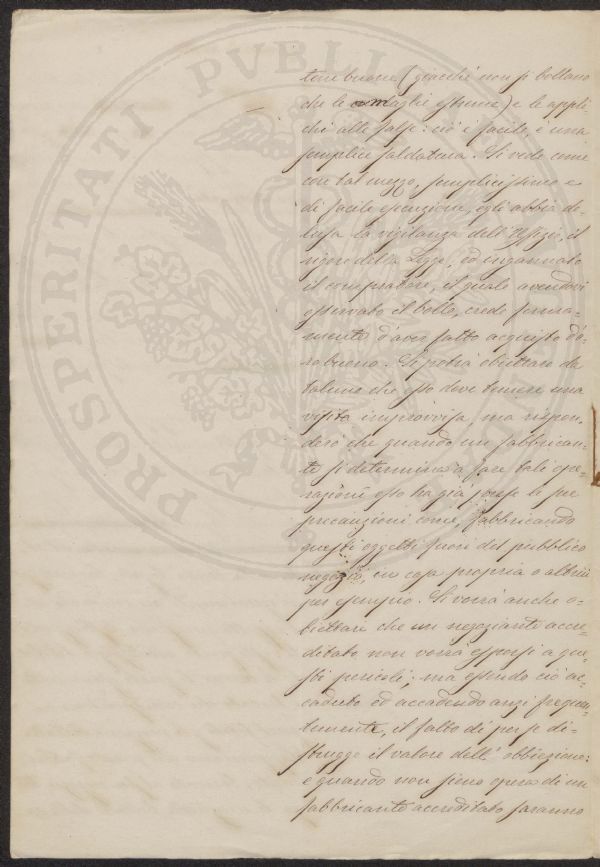 PROSPERITATI PVBLI
tene buone (giacchè non si bollano
che le maglie estreme) e le appli-
chi alle false: ciò è facile, è una
semplice saldatura. Si vede come
con tal mezzo, semplicissimo e
di facile esecuzione, egli abbia de-
lusa la vigilanza dell'Uffizio, il
rigore della Legge, ed ingannato
il compratore, il quale avendovi
osservato il bollo, crede ferma-
mente d'aver fatto acquisto d'o-
ro buono. Si potrà obiettare da
taluno che esso deve temere una
visita improvvisa, ma rispon-
derò che quando un fabbrican-
te si determina a fare tali ope-
razioni esso ha già prese le sue
precauzioni come, fabbricando
questi oggetti fuori del pubblico
negozio, in casa propria o altrui
per esempio. Si vorrà anche o-
biettare che un negoziante accre-
ditato non vorrà esporsi a que-
sti pericoli; ma essendo ciò ac-
caduto ed accadendo anzi frequen-
temente, il fatto di per se di-
strugge il valore dell'obbiezione:
e quando non sieno opera di un
fabbricante accreditato saranno